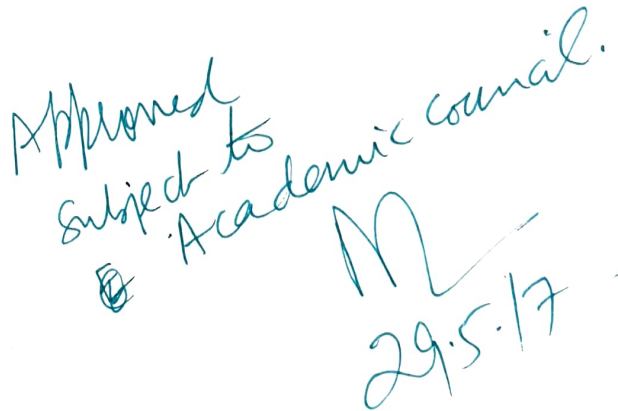 Approved
subject to
Academic council.
29.5.17